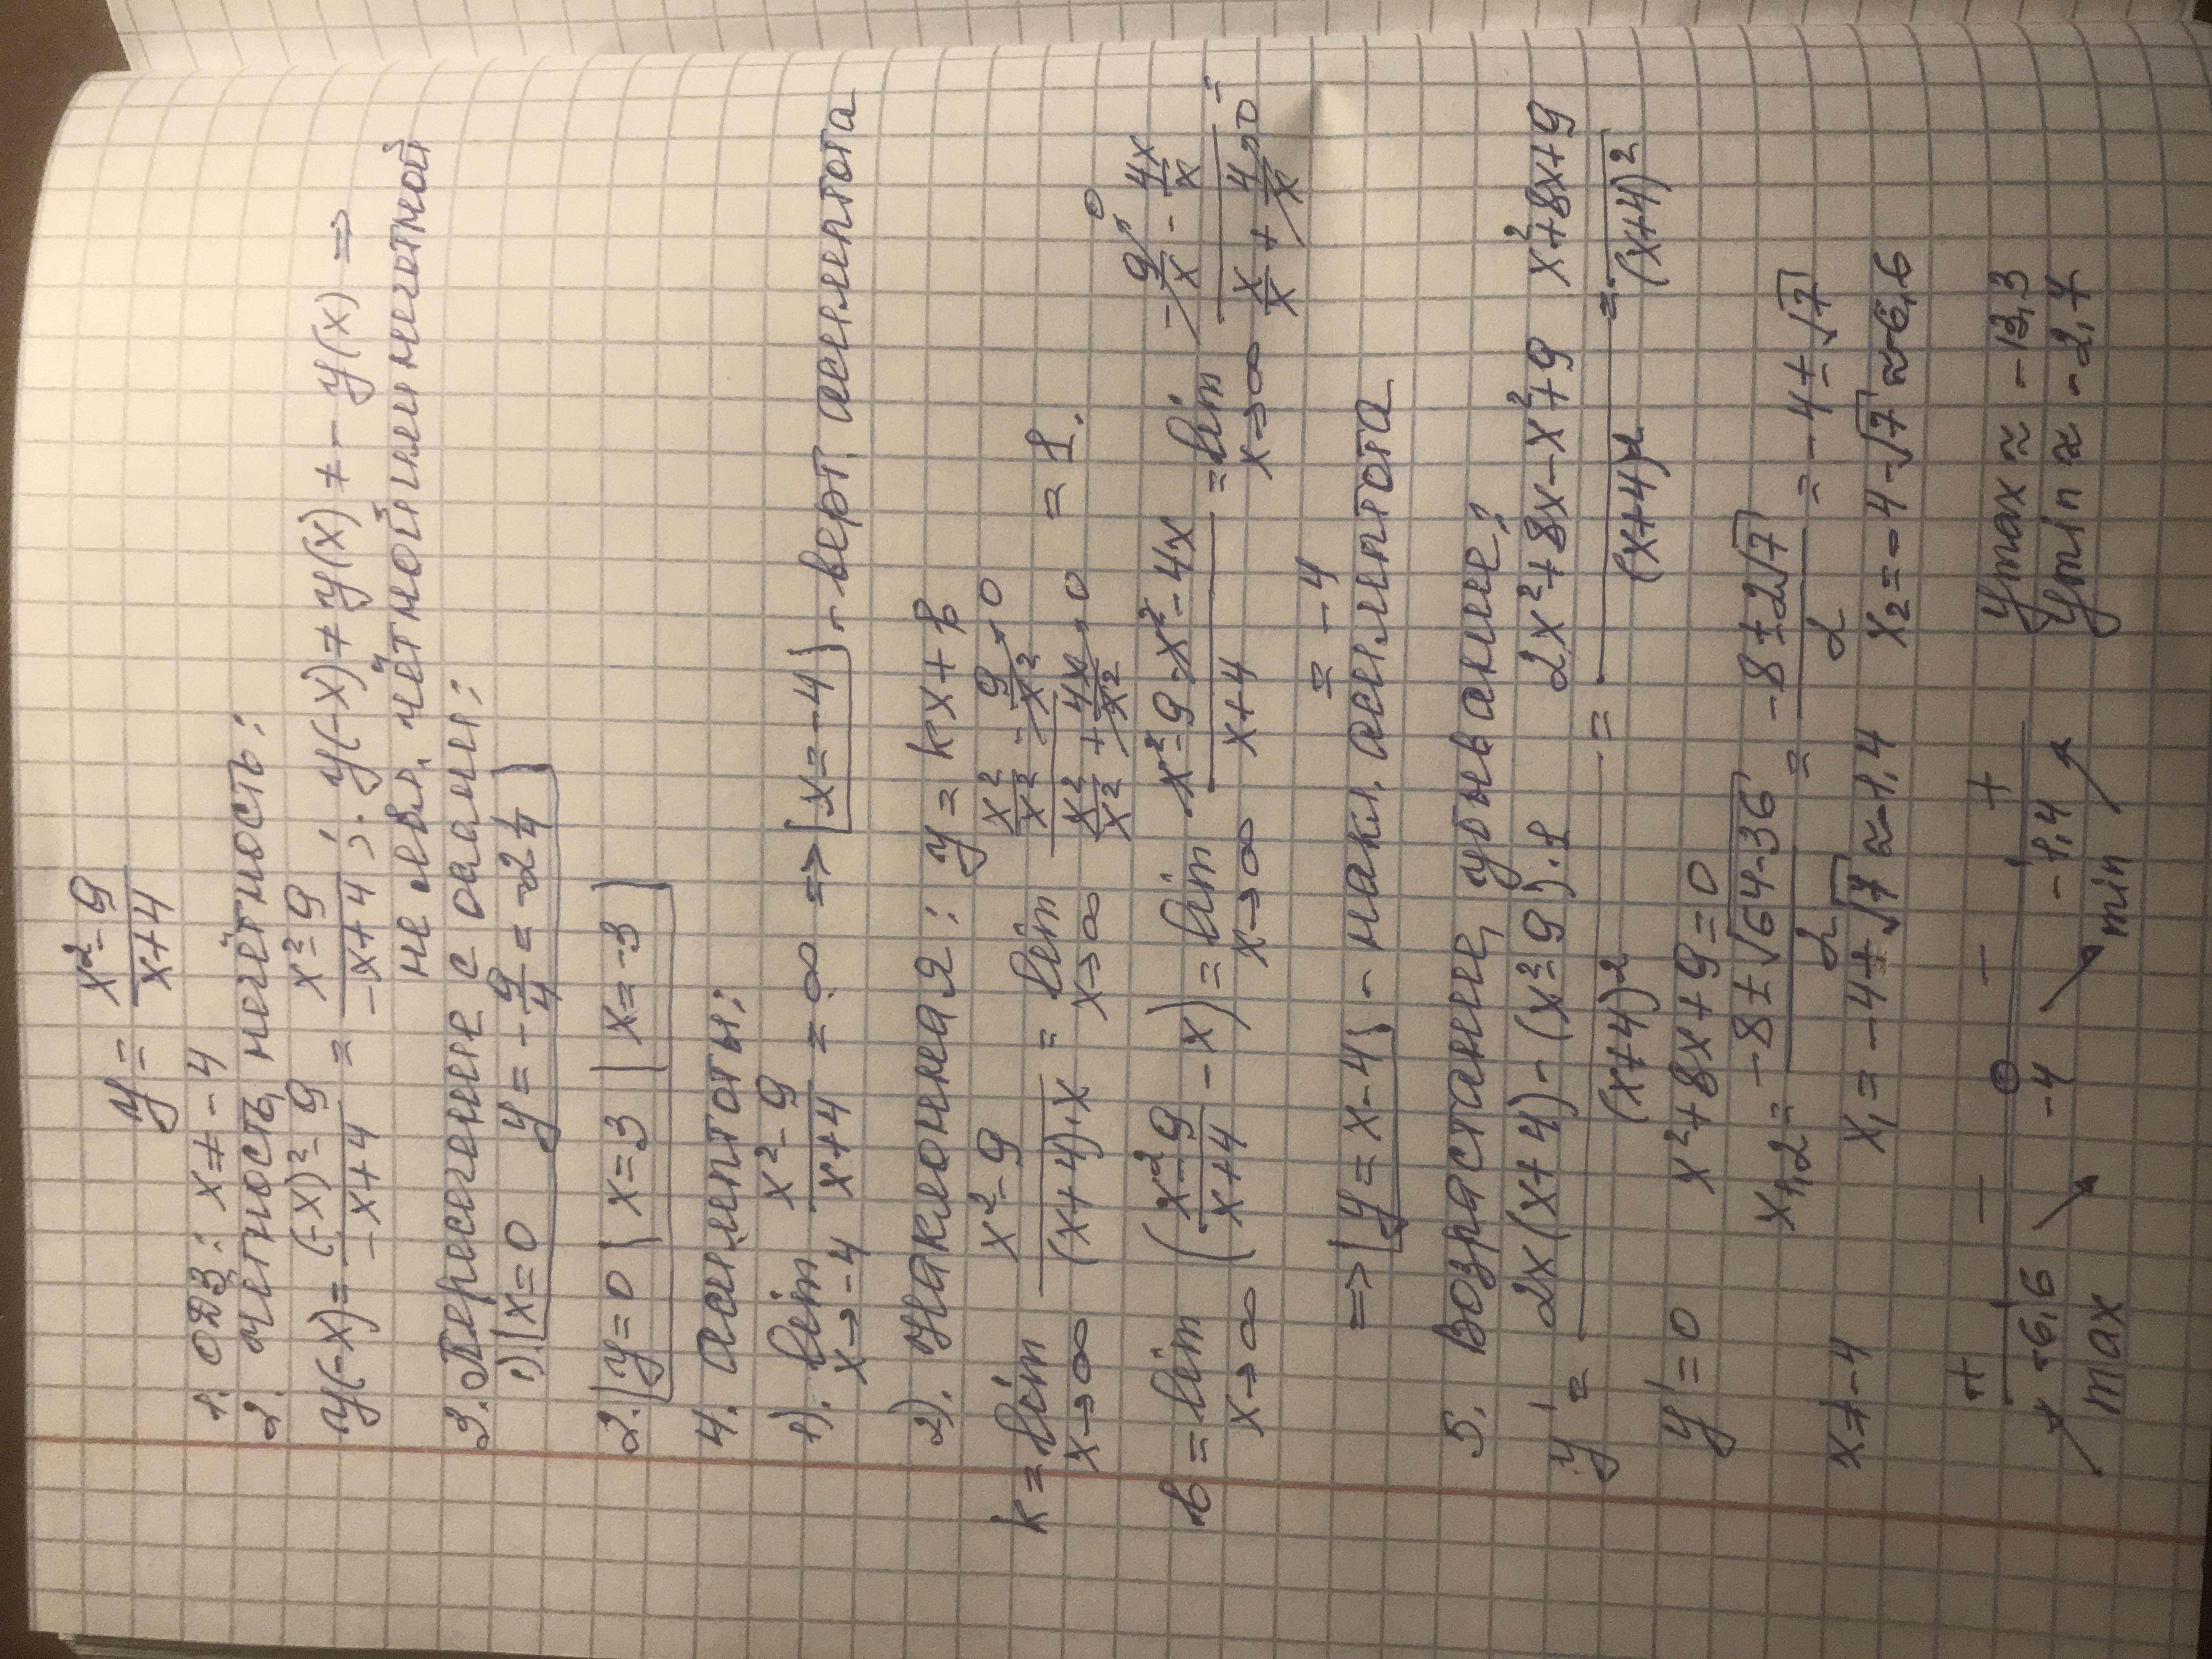 y = (x² - 9)/(x+4)
1. ОДЗ: x ≠ -4
2. Чётность, нечётность:
y(-x) = ((-x)² - 9)/(-x+4) = (x² - 9)/(-x+4); y(-x) ≠ y(x) ≠ -y(x) ⇒
не явл. чётной или нечетной
3. Пересечение с осями:
1). x=0 y = -9/4 = -2 1/4
2. y=0 x=3 x=-3
4. Асимптоты:
1). lim x→-4 (x² - 9)/(x+4) = ∞ => x=-4 - верт. асимптота
2). Наклонная: y = kx + b
k = lim x→∞ (x² - 9)/((x+4)·x) = lim x→∞ (x²/x² - 9/x² →0)/(x²/x² + 4x/x² →0) = 1.
b = lim x→∞ ((x² - 9)/(x+4) - x) = lim x→∞ (x² - 9 - x² - 4x)/(x+4) = lim x→∞ (-9/x →0 - 4x/x)/(x/x + 4/x →0) =
= -4
=> y = x - 4 - накл. асимптота
5. Возрастание, убывание:
y' = (2x(x+4) - (x² - 9)·1)/(x+4)² = (2x² + 8x - x² + 9)/(x+4)² = (x² + 8x + 9)/(x+4)²
y' = 0 x² + 8x + 9 = 0
x1,2 = (-8 ± √64-36)/2 = (-8 ± 2√7)/2 = -4 ± √7
x ≠ -4 x₁ = -4 + √7 ≈ -1,4 x₂ = -4 - √7 ≈ -6,6
+ - - +
-6,6 -4 -1,4 ymax ≈ -13,3
max min ymin ≈ -2,7